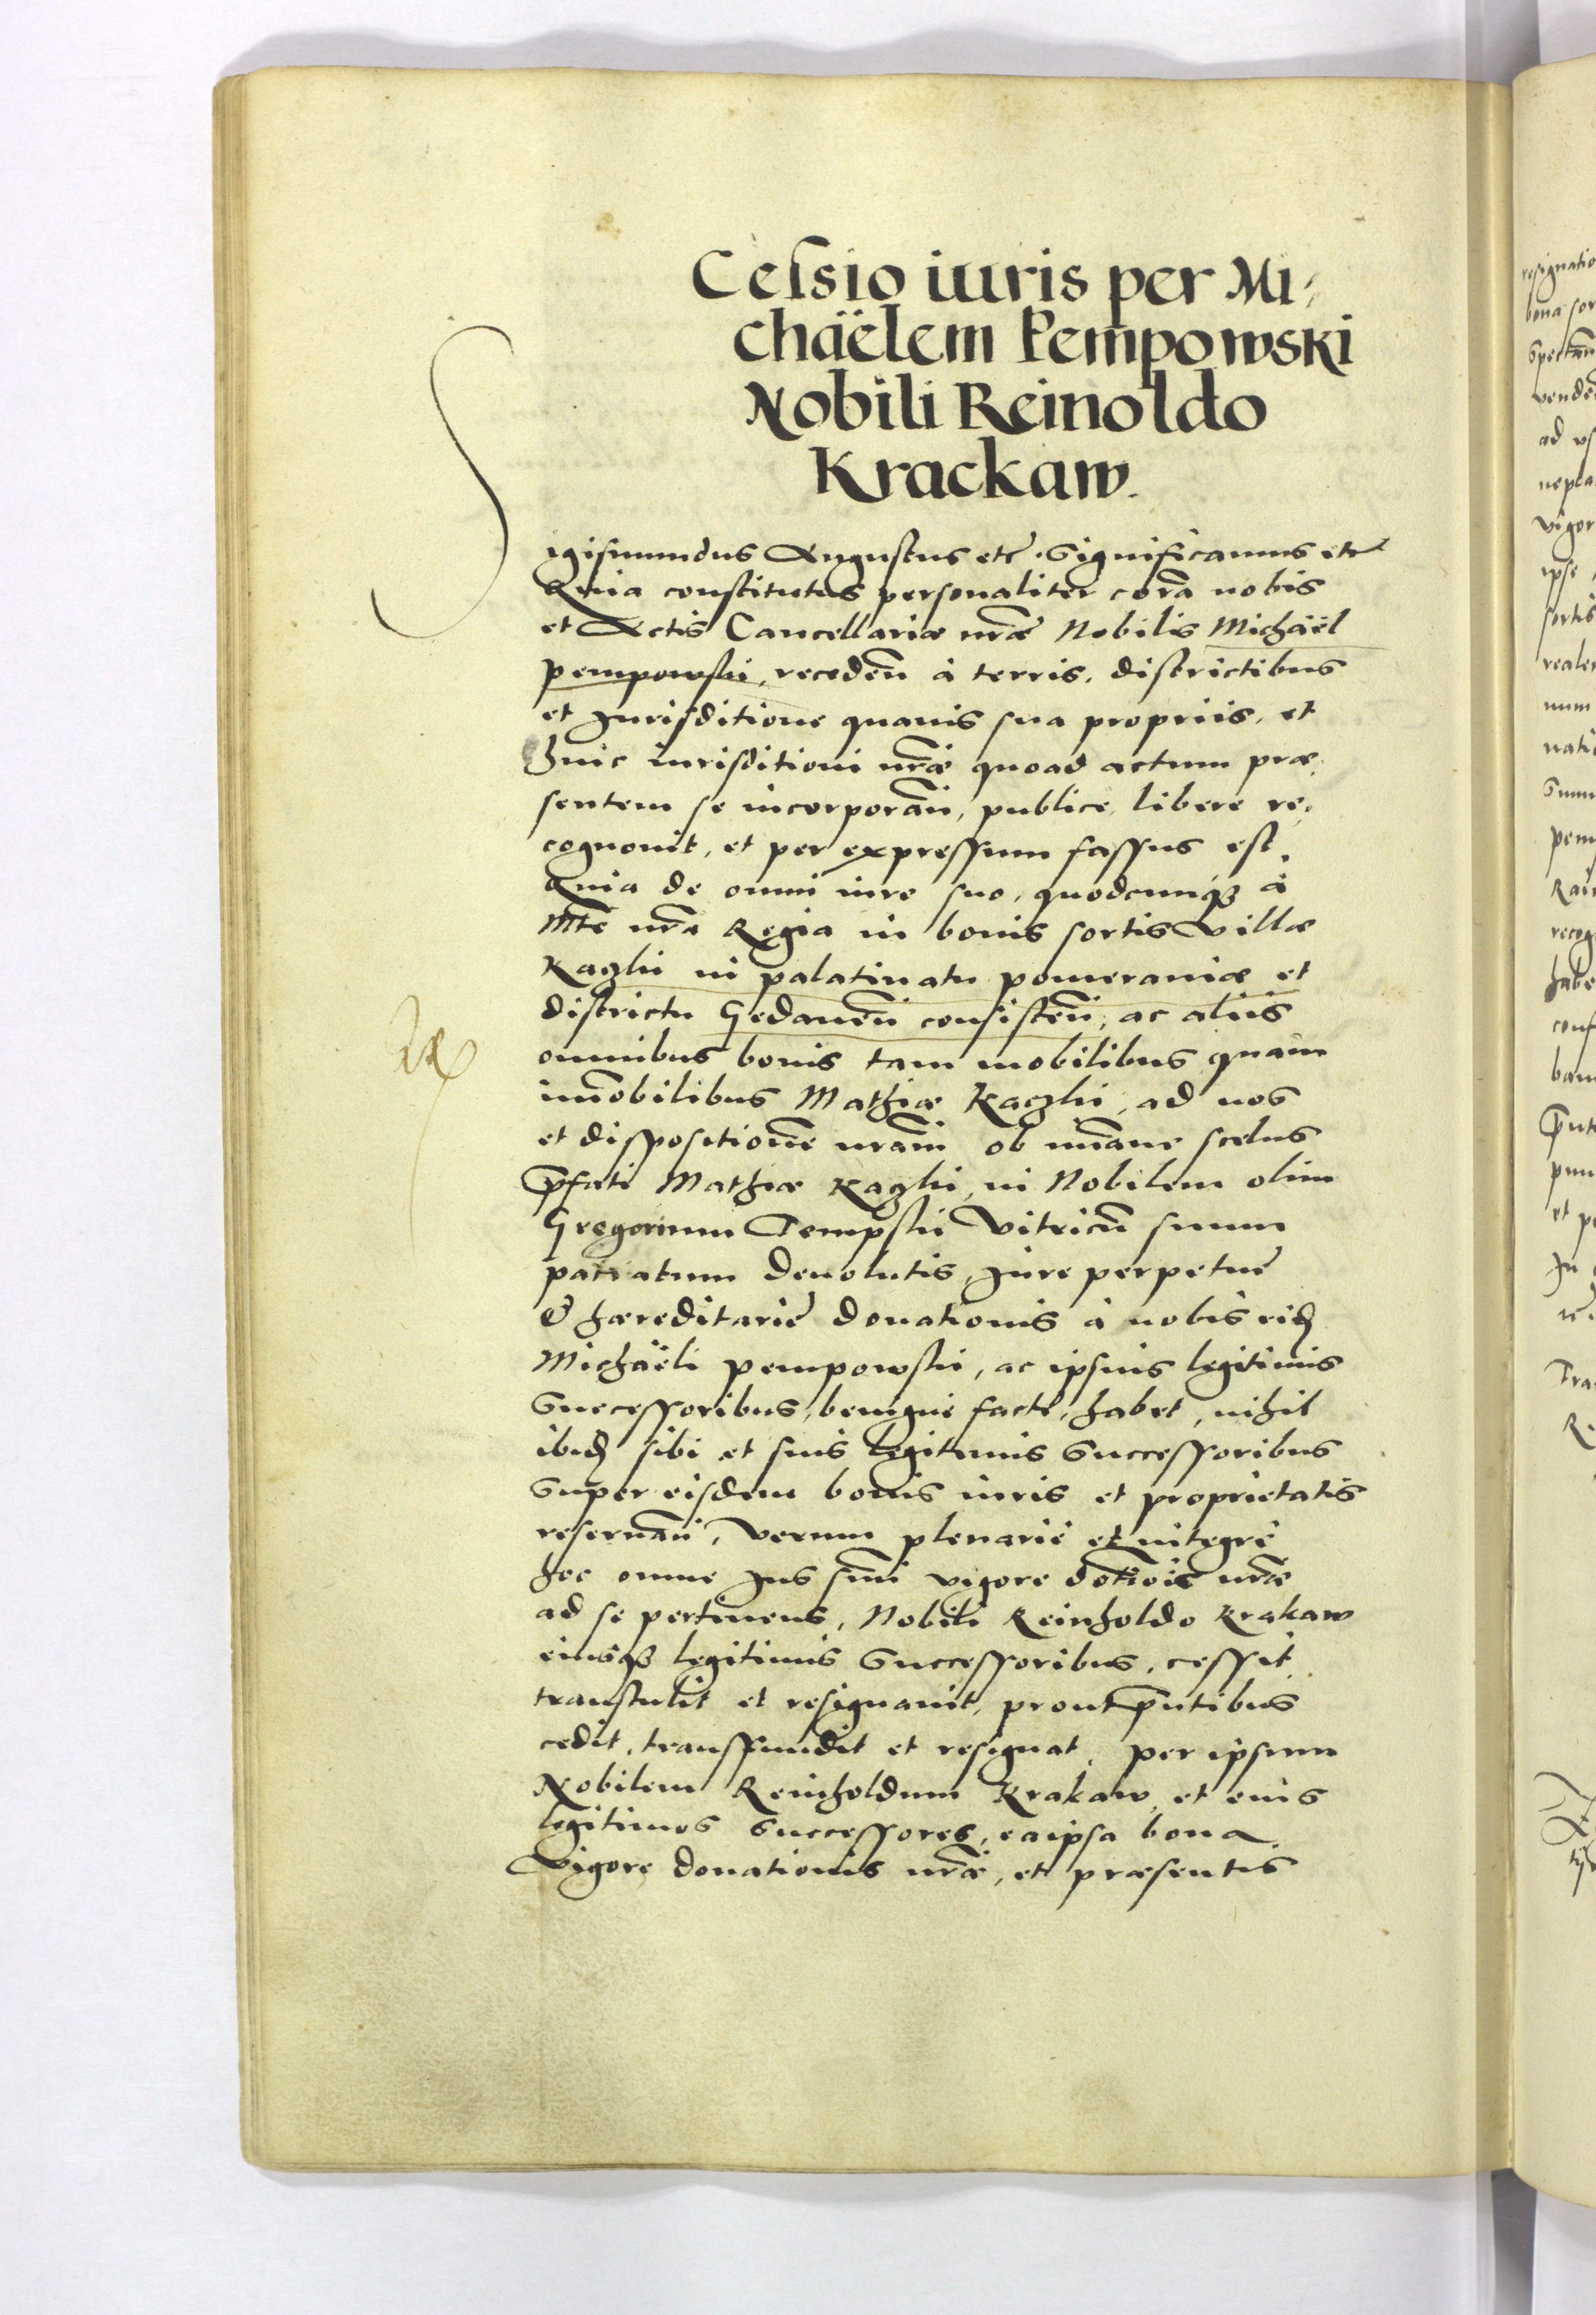 Cessio iuris per Mi-
chäelem Pempowski
Nobili Reinoldo
Krackaw.
Sigismundus Augustus etc. Significamus etc
Quia constitutus personaliter corā nobis
et Actis Cancellariæ nrǣ Nobilis Michäel
Pempowski, recedeñ à terris, districtibus
et Jurisditione quauis sua propriis, et
huic iurisditioni nrǣ quoad actum præ-
sentem se incorporañ, publice, libere re-
cognouit, et per expressum fassus est,
Quia de omni iure suo, quodcunqȝ à
Mte nrā Regia in bonis sortis Villæ
Kaczki in palatinatu pomeraniæ et
districtu Gedaneñ consisteñ, ac aliis
omnibus bonis tam mobilibus quam
im̄obilibus Mathiæ Kaczki, ad nos
et dispositionē nram̄ ob im̄ane scelus
p̄fati Mathiæ Kaczki, in Nobilem olim
Gregorium Tempski Vitricū suum
patratum deuolutis, Jure perpetuę
& hæreditarię donationis à nobis eid̄
Michäeli Pempowski, ac ipsius legitimis
Successoribus, benigne factę, habet, nihil
ibid̄ sibi et suis legitimis Successoribus
Super eisdem bonis iuris et proprietatis
reseruañ, Verum plenariè et integrè
hoc omne Jus suū vigore dotiōis nrǣ
ad se pertinens, Nobili Reinholdo Krakaw
eiusqȝ legitimis Successoribus, cessit
transtulit et resignauit, prout p̄ntibus
cedit, transfundit et resignat, per ipsum
Nobilem Reinholdum Krakaw, et eius
legitimos Successores, eaipsa bona
Vigore donationis nrǣ, et præsentis